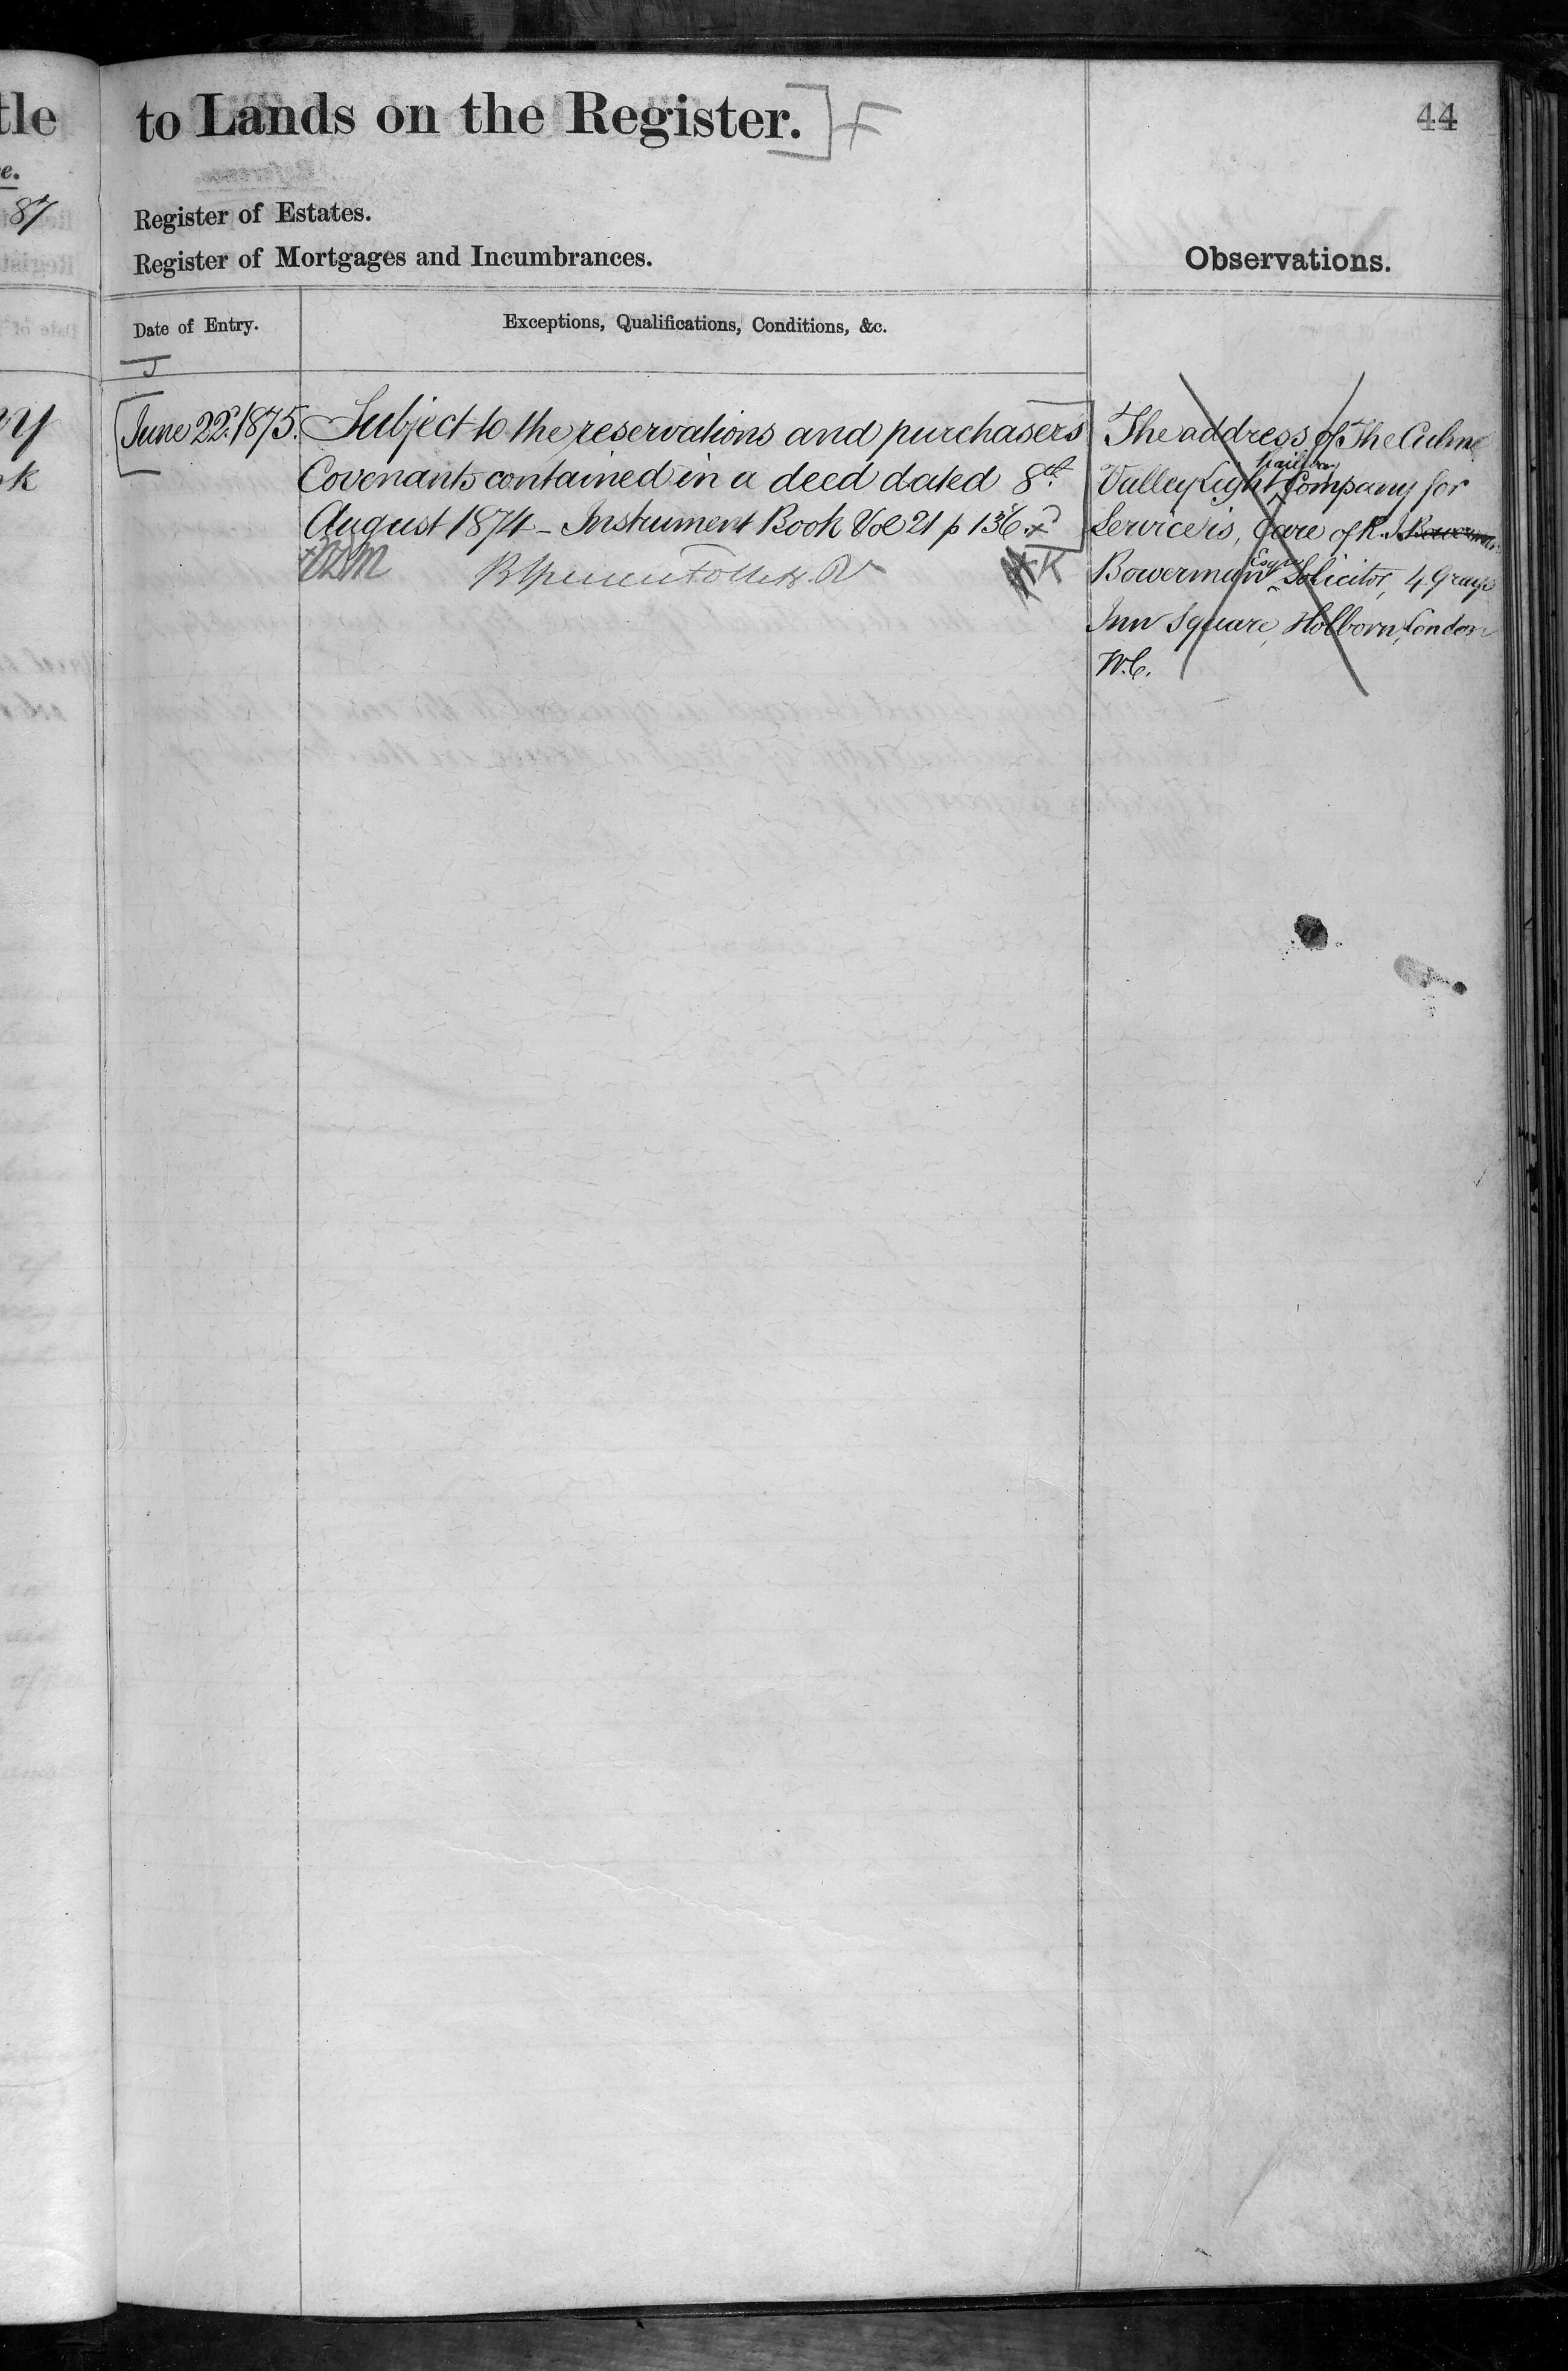 tle
e.
87
to Lands on the Register.
44
Register of Estates.
Register of Mortgages and Incumbrances.
Observations.
Date of Entry.
Exceptions, Qualifications, Conditions, &c.
June 22d. 1875.
Subject to the reservations and purchasers
Covenants contained in a deed dated 8th
August 1874 - Instrument Book Vol 21 p 136.
K
The address of The Culme
Valley Light Railway Company for
Service is, Care of R. J. Bowerman
Bowerman Esqre Solicitor, 4 Grays
Inn Square, Holborn, London
W.C.